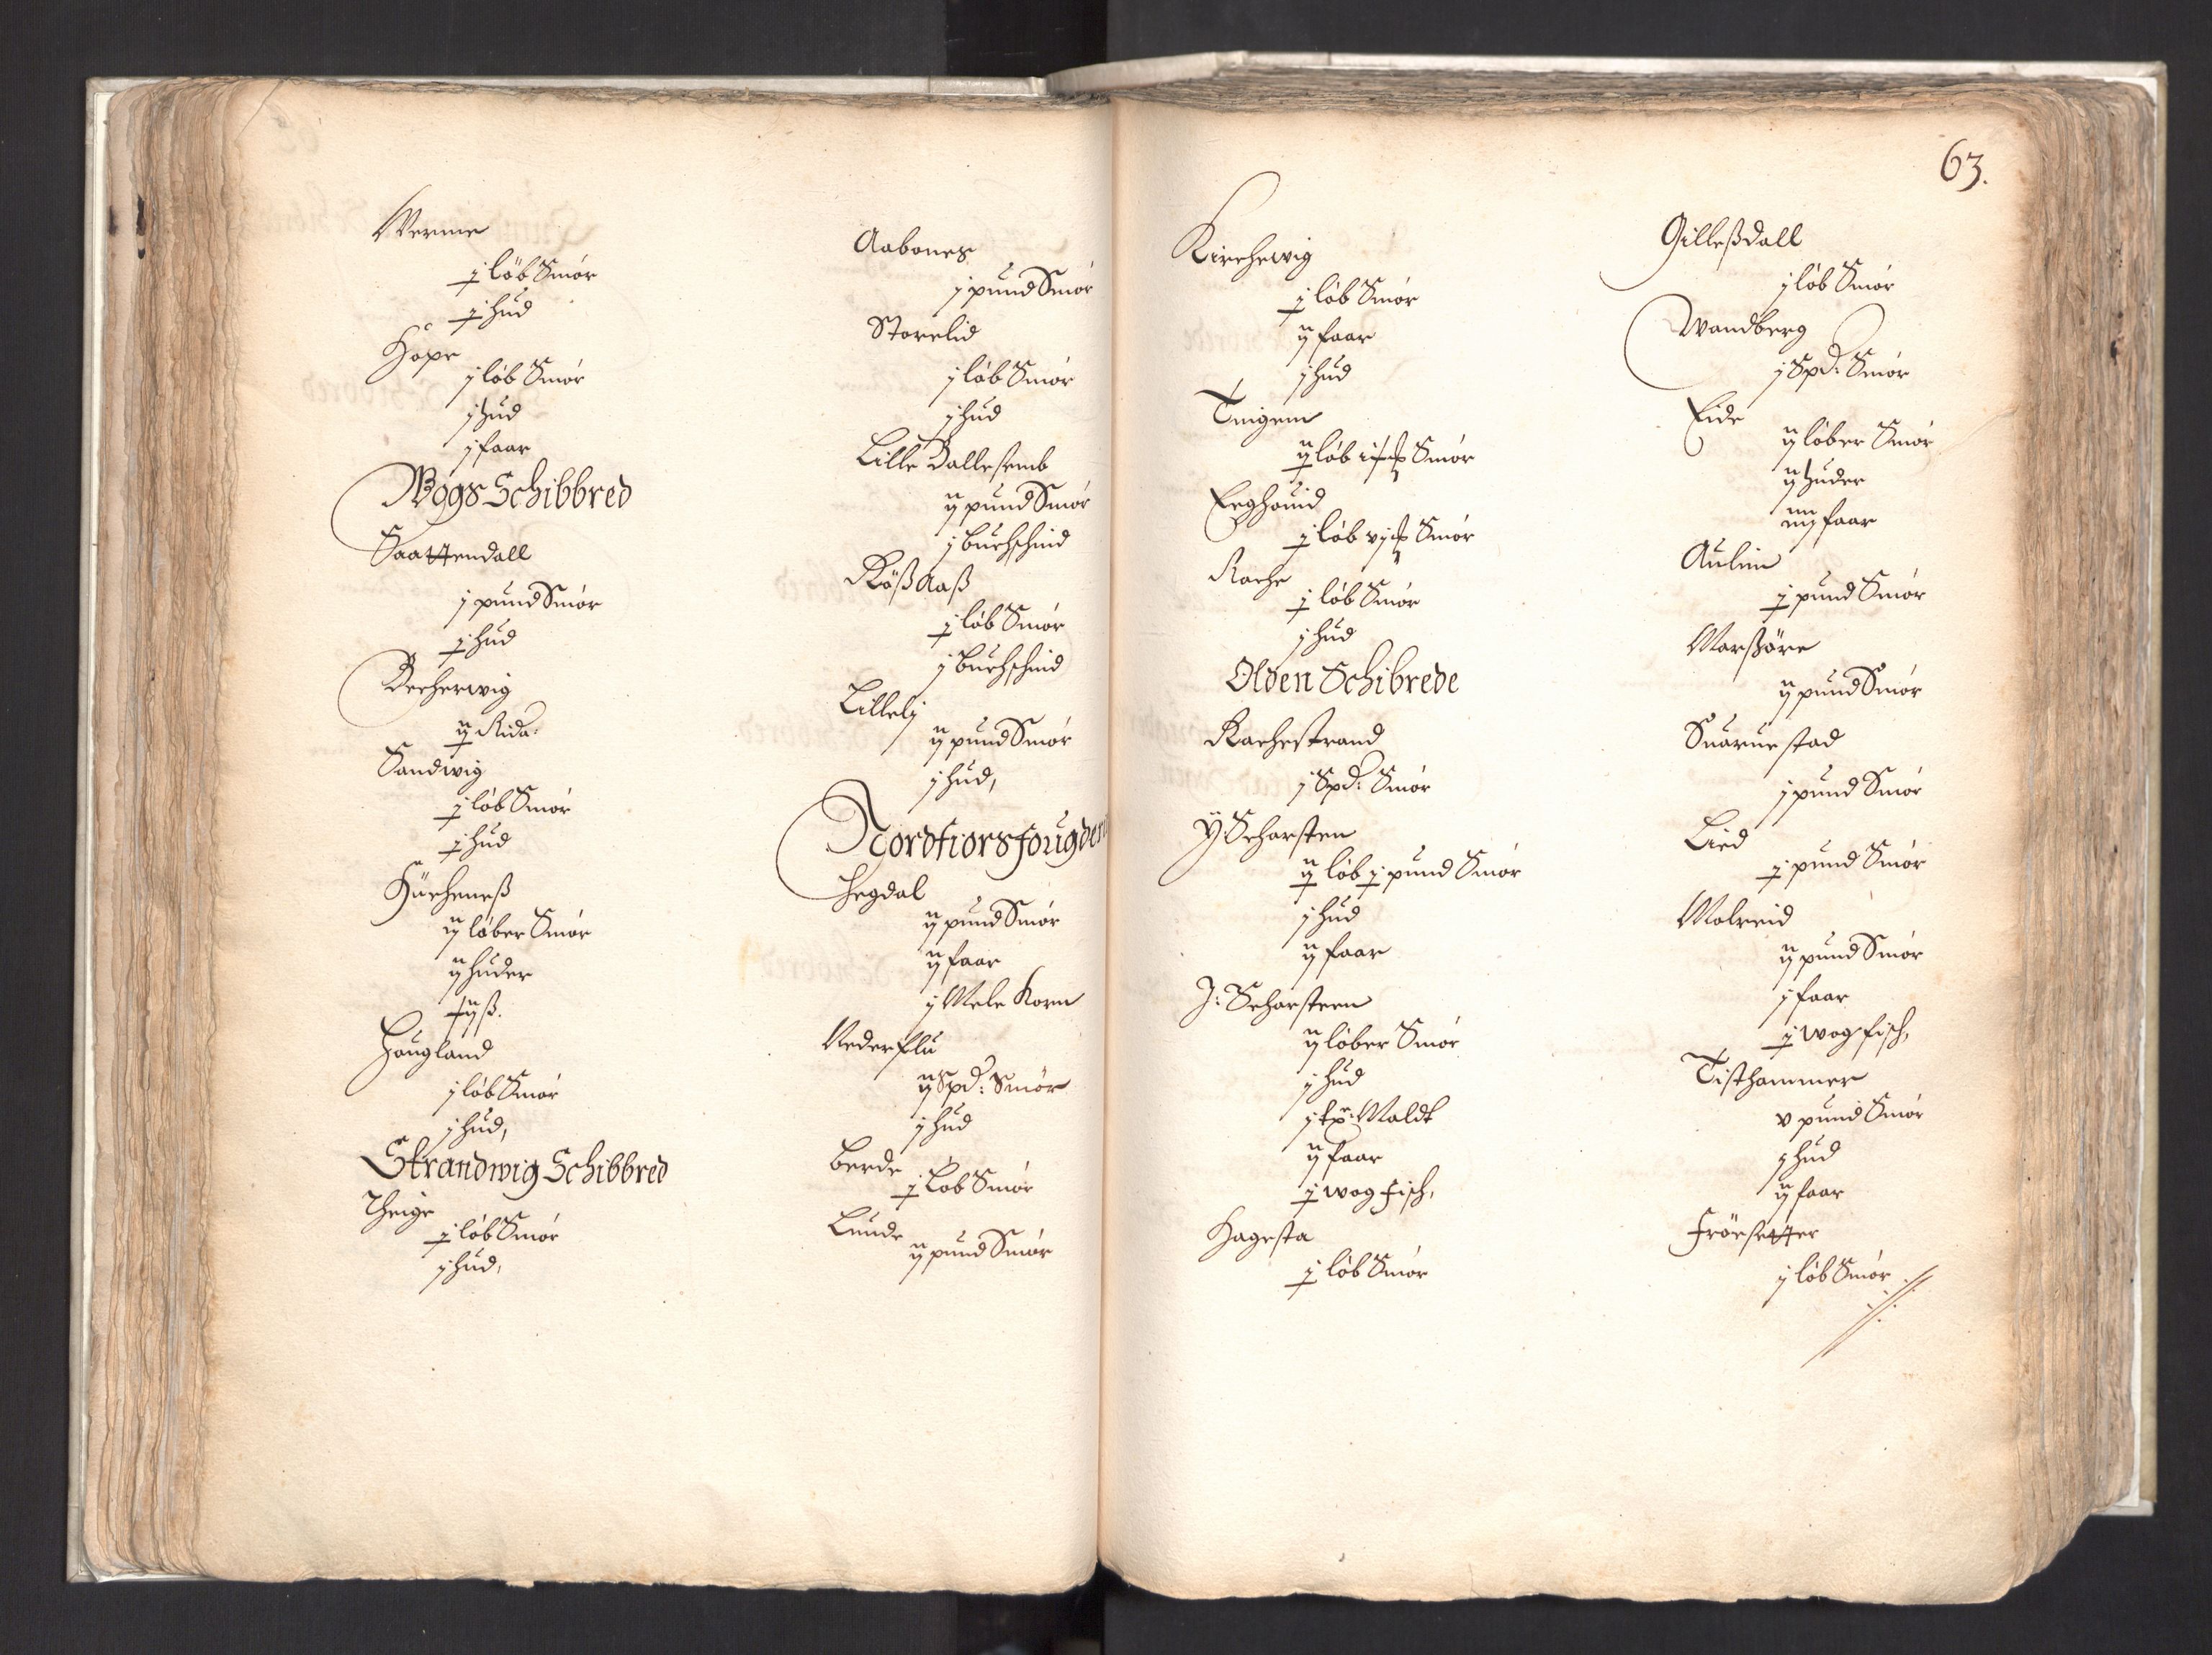 Werme
½ löb Smör
½ hud
Hope
j löb Smör
j hud
j faar
Wogs Schibbred
Saattendall
j pund Smör
½ hud
Becherwig
Sandwig
½ löb Smör
½ hud
Kircheneß
ij löber Smör
ij huder
Haugland
j löb Smör
j hud,
Strandwig Schibbred
Theige
½ löb Smör
j hud,
Aabones
j pund Smör
Storelid
j löb Smör
j hud
Lille Dallesemb
ij pund Smör
j Buchschind
Röß Aaß
½ löb Smör
j Buchschind
Lilleli
ij pund Smör
j hud,
Nordfiors fougderi
Hegdal
ij pund Smör
ij faar
j Mele Korn
Nederflu
ij Spd: Smör
j hud
Berde
½ Löb Smör
Lunde
ij pund Smör
63.
Kirchewig
½ löb Smör
ij faar
j hud
Tuigem
Smör
Eeghouid
Smör
Rache
½ löb Smör
j hud
Olden Schibrede
Rachestrand
j Spd: Smör
Ÿ Scharsten
löb ½ pund Smör
j hud
ij faar
J: Scharsteen
ij löber Smör
j hud
j tr: Maldt
ij faar
½ wog fisch,
Hagesta
½ löb Smör
Gilleßdall
j löb Smör
Wandberg
j Spd: Smör
Eide
ij löber Smör
ij huder
iiij faar
Aulim
½ pund Smör
Marßöre
ij pund Smör
Suaruestad
j pund Smör
Lied
½ pund Smör
Molreid
ij pund Smör
j faar
½ wog fisch,
Tisthammer
v pund Smör
j hud
ij faar
Frörsetter
j löb Smör